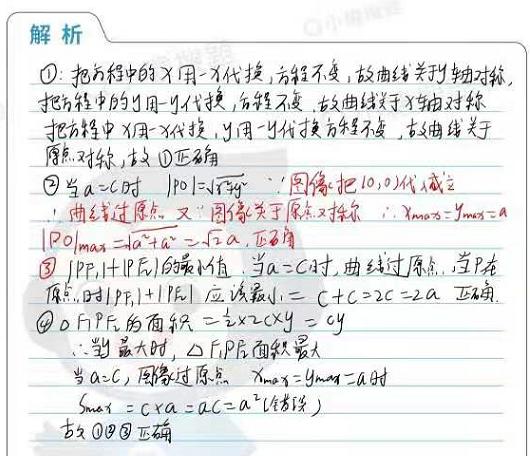 解析
①：把方程中的x用-x代换，方程不变，故曲线关于y轴对称，
把方程中的y用-y代换，方程不变，故曲线关于x轴对称
把方程中x用-x代换，y用-y代换方程不变，故曲线关于
原点对称，故①正确
②当a=c时 |PO|=√x²+y² ∵图像把(0,0)代入成立
∴曲线过原点 又∵图像关于原点对称 ∴xmax=ymax=a
|PO|max=√a²+a²=√2a，正确
③ |PF₁|+|PF₂|的最小值，当a=c时，曲线过原点，当P在
原点时|PF₁|+|PF₂|应该最小=c+c=2c=2a 正确.
④△F₁PF₂的面积=½×2c×y=cy
∴当y最大时，△F₁PF₂面积最大
当a=c，图像过原点 xmax=ymax=a时
Smax=c×a=ac=a²(错误)
故①②③正确